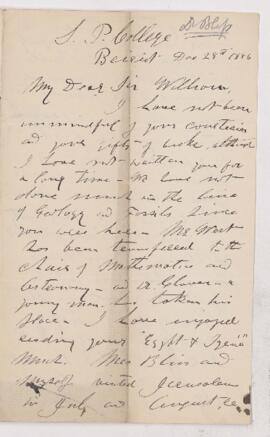 Dr Bliss
S. P. College
Beirût Dec 28th 1886
My Dear Sir William,
I have not been
unmindful of your courtesies
and your gifts of books, although
I have not written you for
a long time - We have not
done much in the line
of Geology and Fossils since
you were here - Mr West
has been transferred to the
chair of Mathematics and
Astronomy - and a
young man has taken his
place. I have enjoyed
reading your "Egypt & Syria"
Much. Mrs Bliss and
myself visited Jerusalem
in July and August